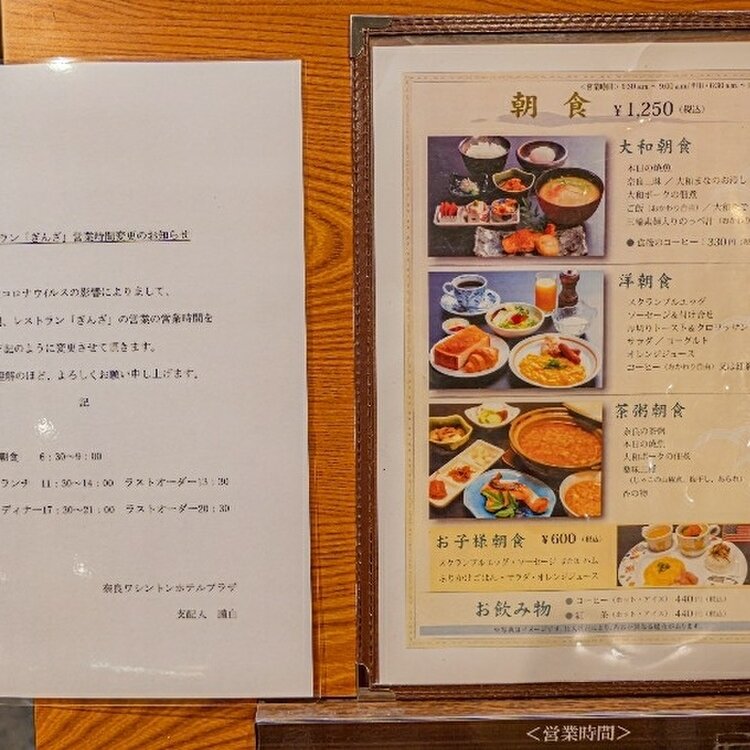 ラン「ぎんざ」営業時間変更のお知らせ
コロナウイルスの影響によりまして、
、レストラン「ぎんざ」の営業の営業時間を
下記のように変更させて頂きます。
理解のほど、よろしくお願い申し上げます。
記
朝食 6：30～9：00
ランチ 11：30～14：00 ラストオーダー13：30
ディナー17：30～21：00 ラストオーダー20：30
奈良ワシントンホテルプラザ
支配人 謹白
朝食 ￥1,250（税込）
大和朝食
本日の焼魚
大和ポークの佃煮
●食後のコーヒー：330円（税
洋朝食
スクランブルエッグ
ソーセージ&付け合せ
厚切りトースト&クロワッサン
サラダ／ヨーグルト
オレンジジュース
コーヒー（おかわり自由）又は紅茶
茶粥朝食
奈良の茶粥
本日の焼魚
大和ポークの佃煮
香の物
お子様朝食 ￥600（税込）
スクランブルエッグ・ソーセージ またはハム
ふりかけごはん・サラダ・オレンジジュース
お飲み物 ●コーヒー（ホット・アイス） 440円（税込）
●紅 茶（ホット・アイス） 440円（税込）
＜営業時間＞